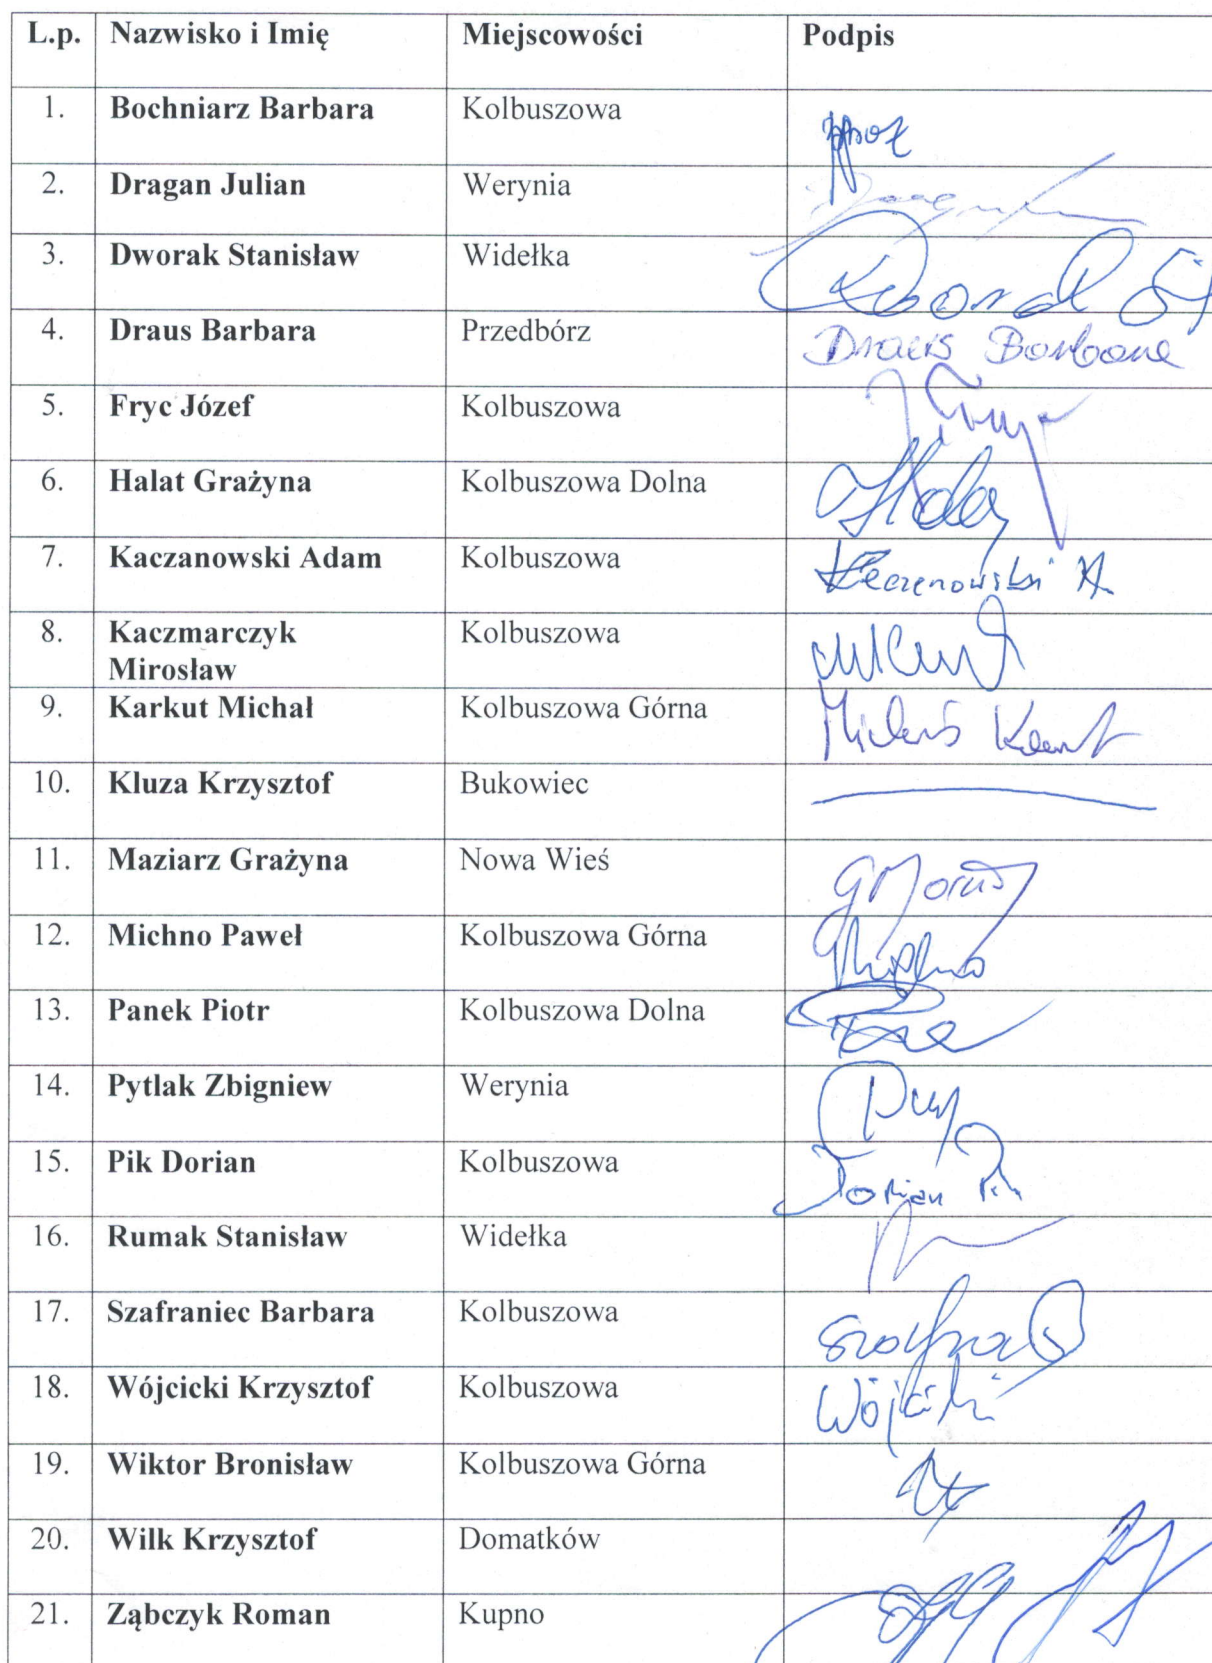 L.p. Nazwisko i Imię Miejscowości Podpis
1. Bochniarz Barbara Kolbuszowa
2. Dragan Julian Werynia
3. Dworak Stanisław Widełka
4. Draus Barbara Przedbórz Draus Barbara
5. Fryc Józef Kolbuszowa
6. Halat Grażyna Kolbuszowa Dolna
7. Kaczanowski Adam Kolbuszowa Kaczanowski A.
8. Kaczmarczyk Kolbuszowa
Mirosław
9. Karkut Michał Kolbuszowa Górna
10. Kluza Krzysztof Bukowiec
11. Maziarz Grażyna Nowa Wieś
12. Michno Paweł Kolbuszowa Górna
13. Panek Piotr Kolbuszowa Dolna
14. Pytlak Zbigniew Werynia
15. Pik Dorian Kolbuszowa Dorian Pik
16. Rumak Stanisław Widełka
17. Szafraniec Barbara Kolbuszowa
18. Wójcicki Krzysztof Kolbuszowa
19. Wiktor Bronisław Kolbuszowa Górna
20. Wilk Krzysztof Domatków
21. Ząbczyk Roman Kupno